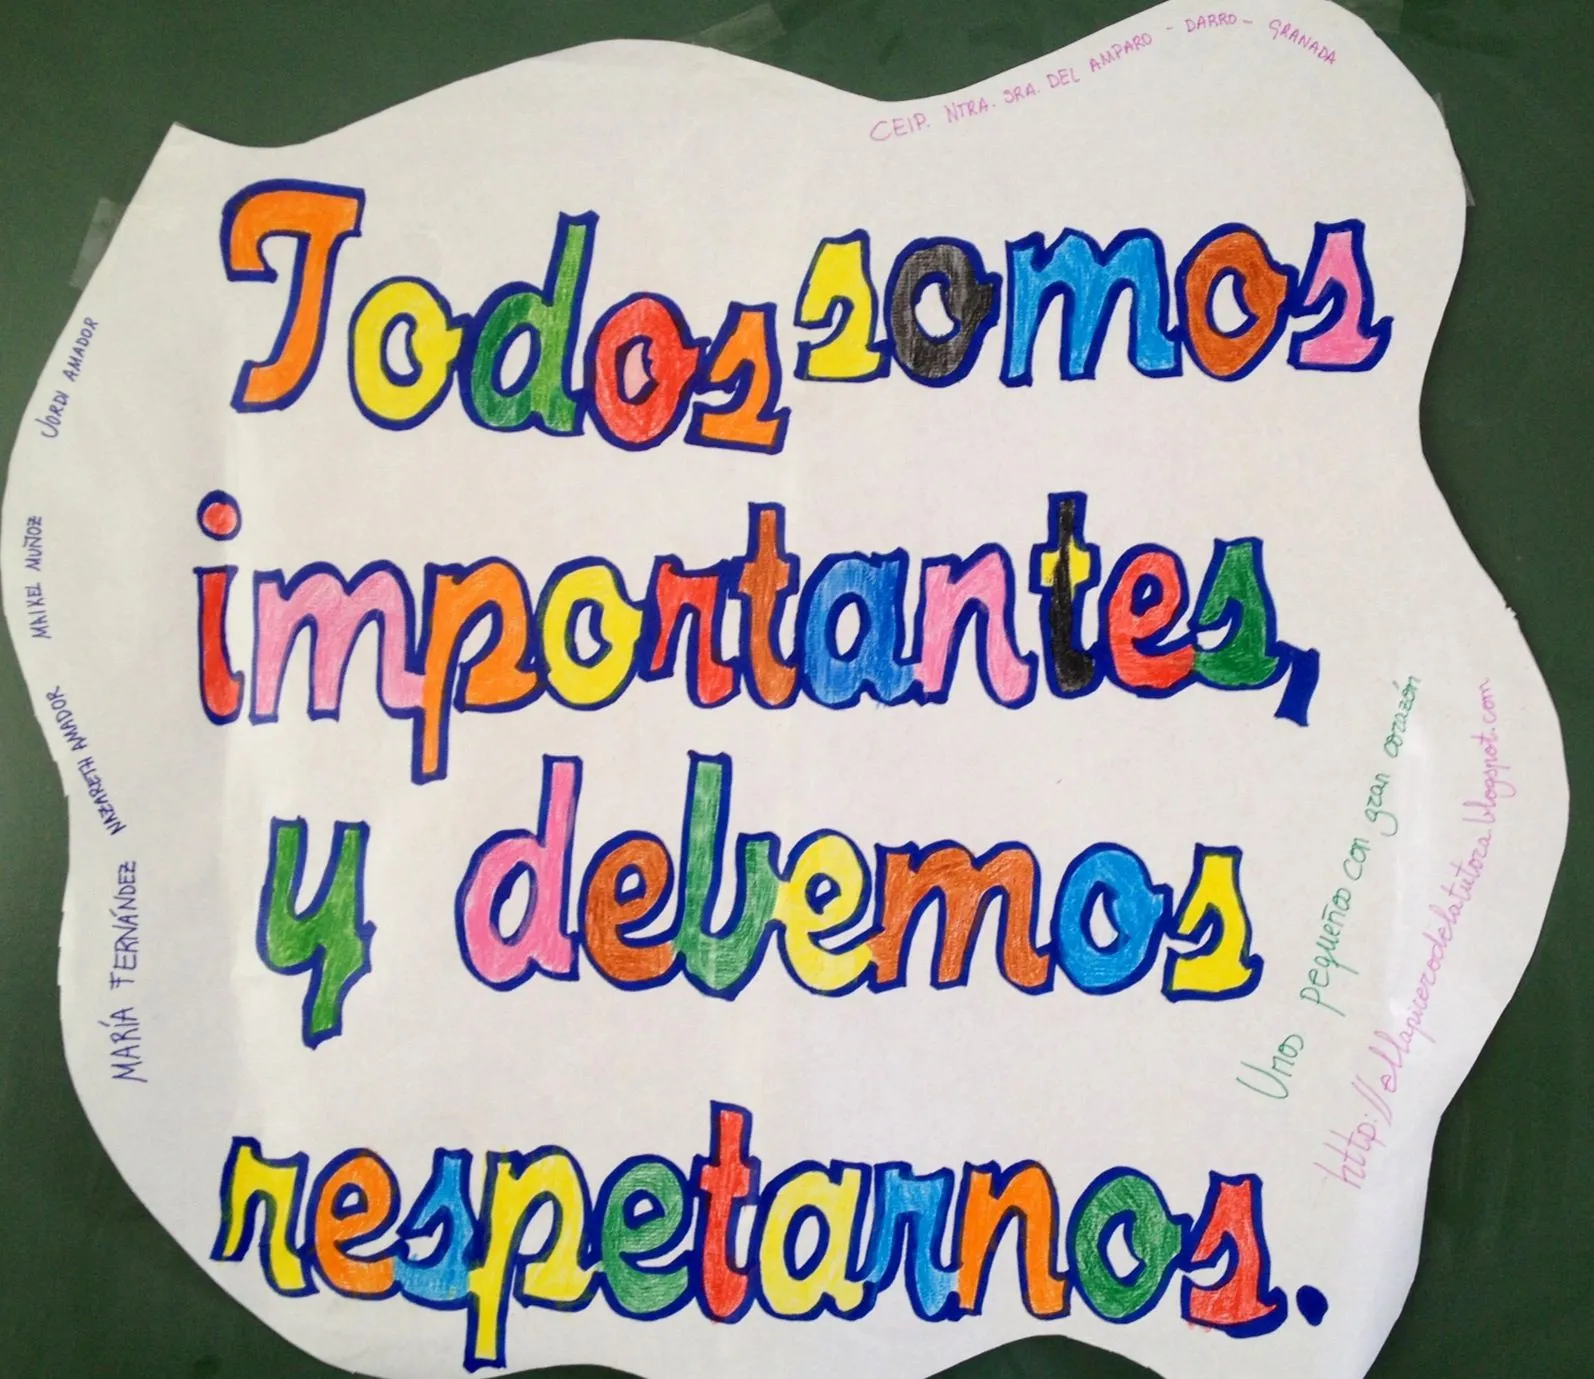 CEIP. NTRA. SRA. DEL AMPARO - DARRO - GRANADA
Todos somos
importantes,
y debemos
respetarnos.
JORDI AMADOR
MAIKEL MUÑOZ
NAZARETH AMADOR
MARÍA FERNÁNDEZ
Unos pequeños con gran corazón
http://ellapicerodelatutora.blogspot.com